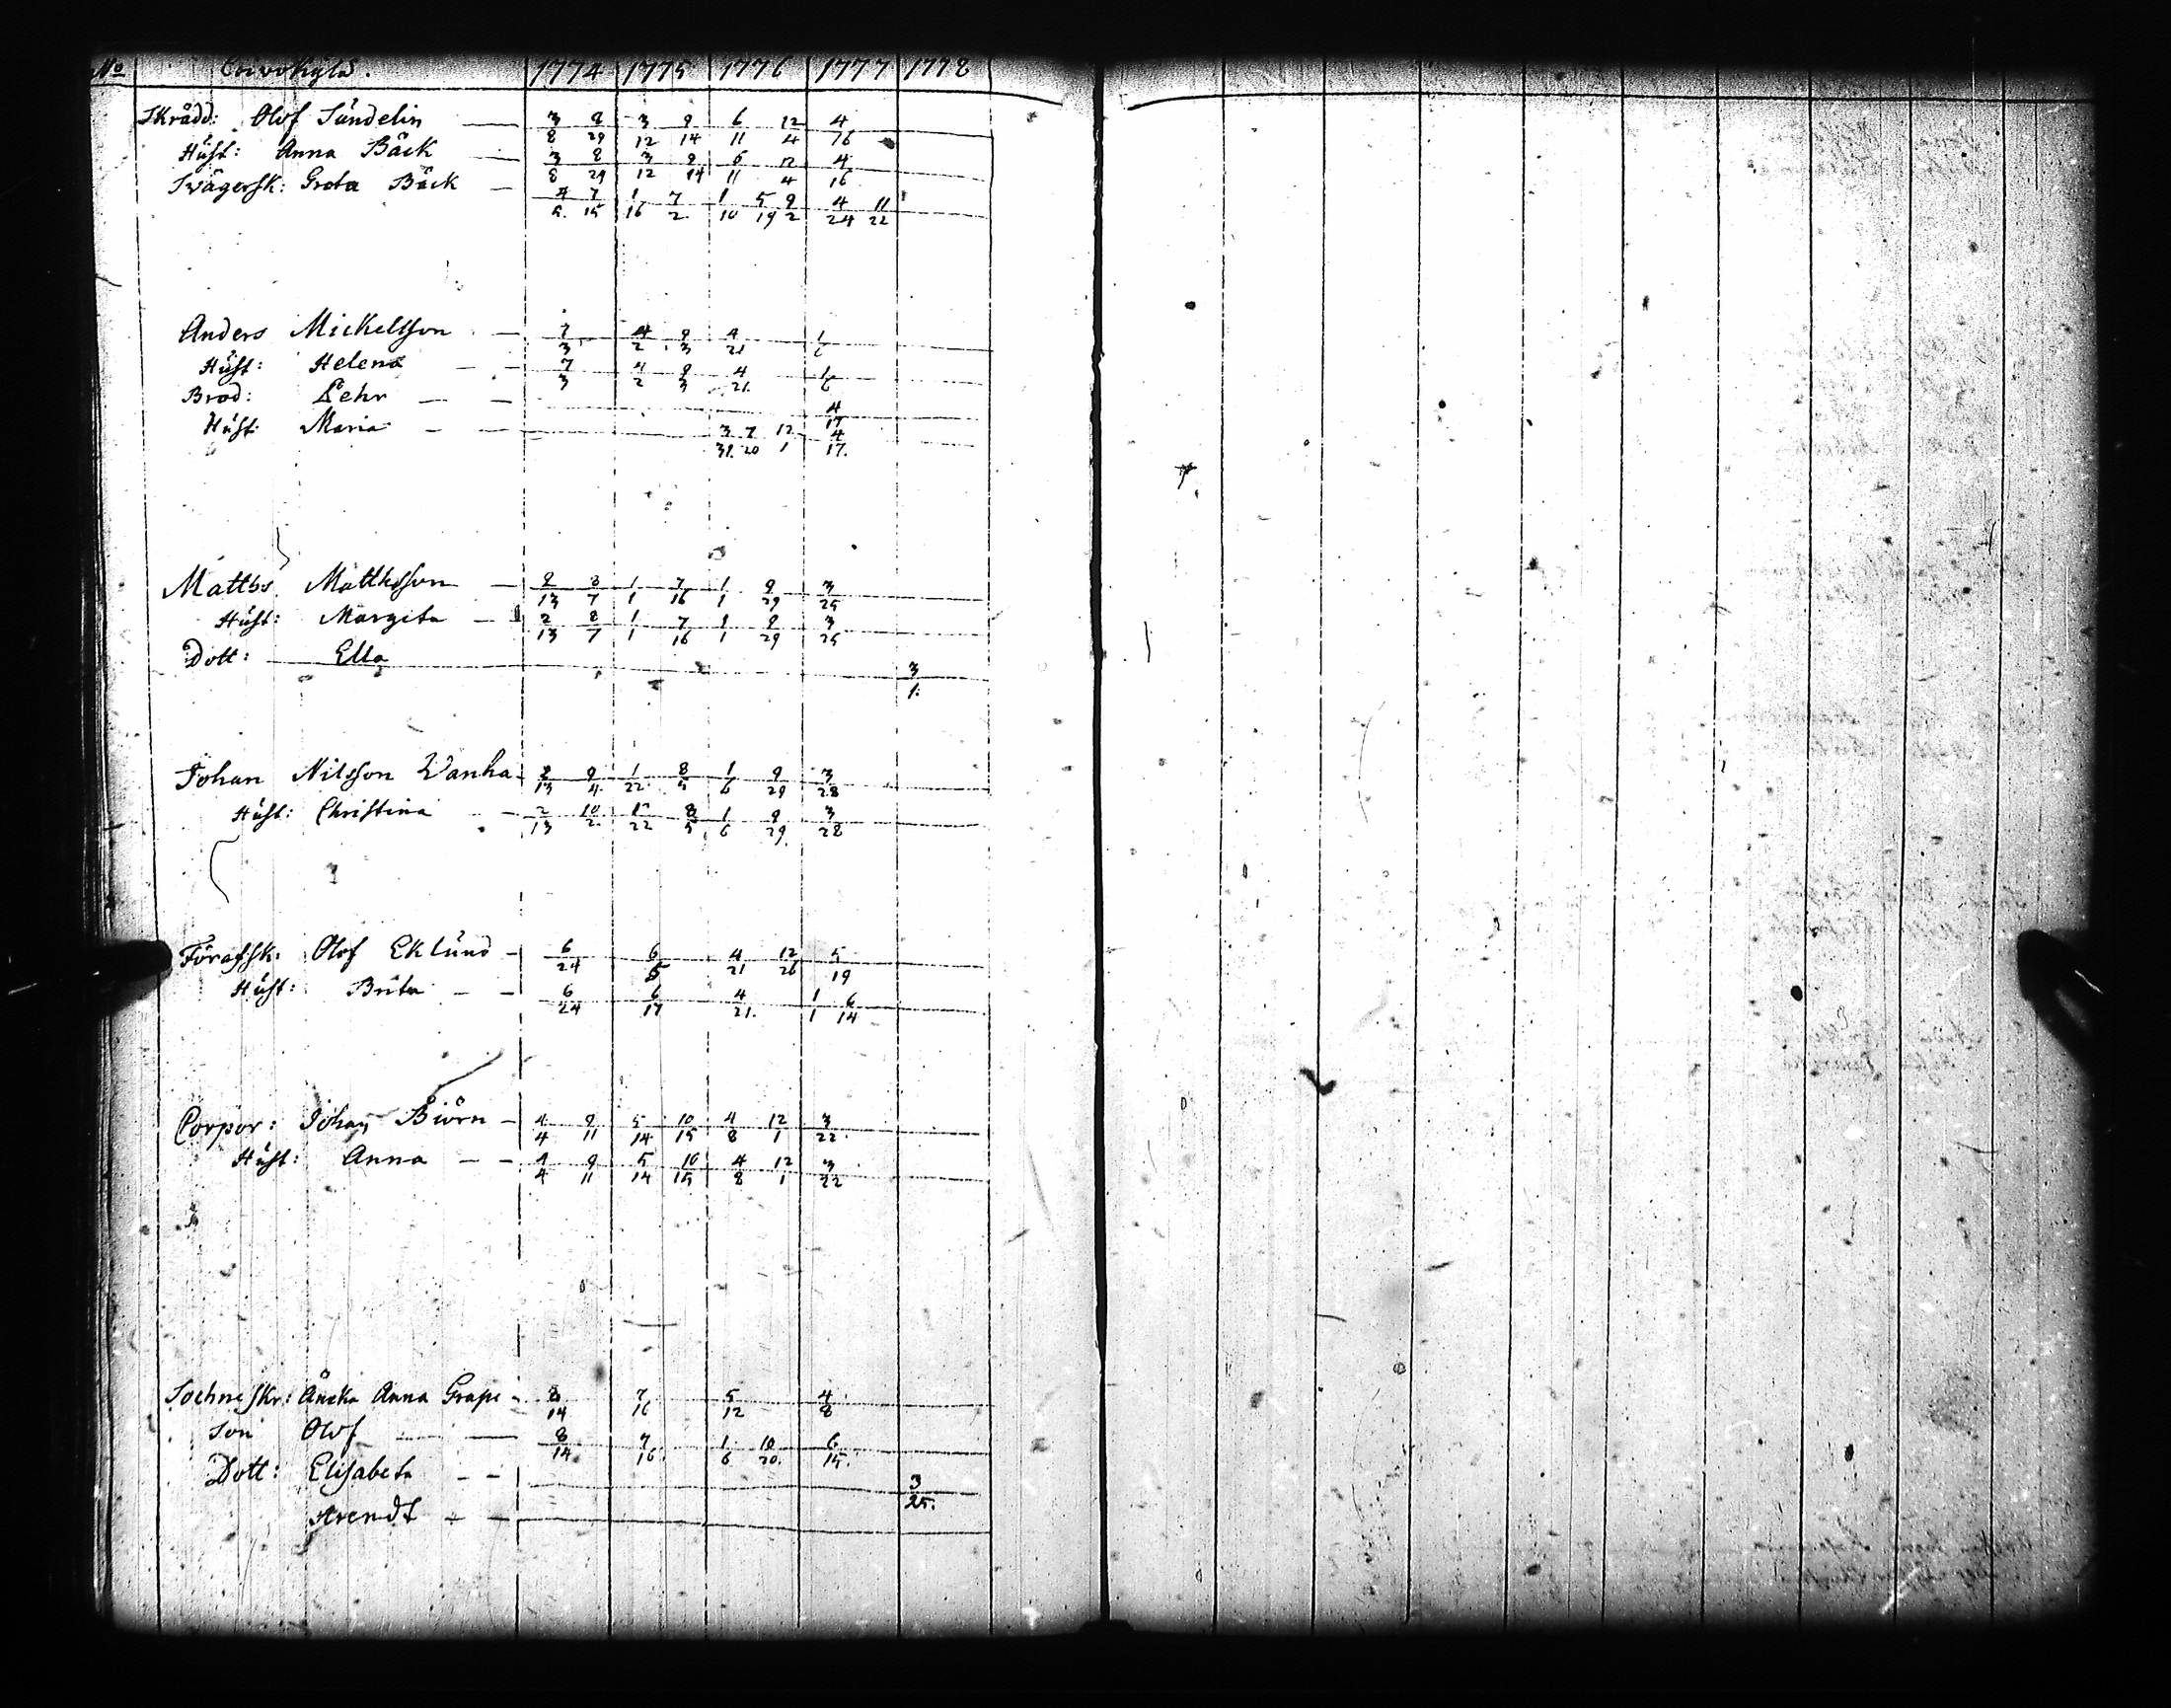 No Coivokylä. 1774 1775 1776 1777 1778
Skrädd: Olof Sundelin — 3/8 8/29 3/12 9/14 6/11 12/4 4/16
Hust: Anna Bäck — 3/8 8/29 3/12 9/14 6/11 12/4 4/16
Swägersk: Greta Bäck — 4/5. 7/15 1/16 7/2 1/10 5/19 9/2 4/24 11/22
Anders Mickelsson — 7/3 4/2 9/3 4/21 1/6
Hust: Helena — — 7/3 4/2 9/3 4/21. 1/6
Brod: Pehr — — 4/17
Hust: Maria — — 3/31. 7/20 12/1 4/17.
Matths Matthsson — 2/13 8/7 1/1 7/16 1/1 9/29 3/25
Hust: Margeta — 2/13 8/7 1/1 7/16 1/1 9/29 3/25
Dott: Ella 3/1.
Johan Nilsson Wanha — 2/13 9/4 1/22 8/5 1/6 9/29 3/28
Hust: Christina — 2/13 10/2 1/22 8/5 1/6 9/29. 3/28
Olof Eklund — 6/24 6/5 4/21 12/26 5/19
Hust: Brita — — 6/24 6/17 4/21. 1/1 6/14
Corpor: Johan Biörn — 4/4 9/11 5/14 10/15 4/8 12/1 3/22.
Hust: Anna — — 4/4 9/11 5/14 10/15 4/8 12/1 3/22
Sochneskr: Äncka Anna Grape — 8/14 7/16 5/12 4/8
Son Olof — — 8/14. 7/16. 1/6 10/20. 6/15.
Dott: Elisabeta — — 3/25.
Arendt — —